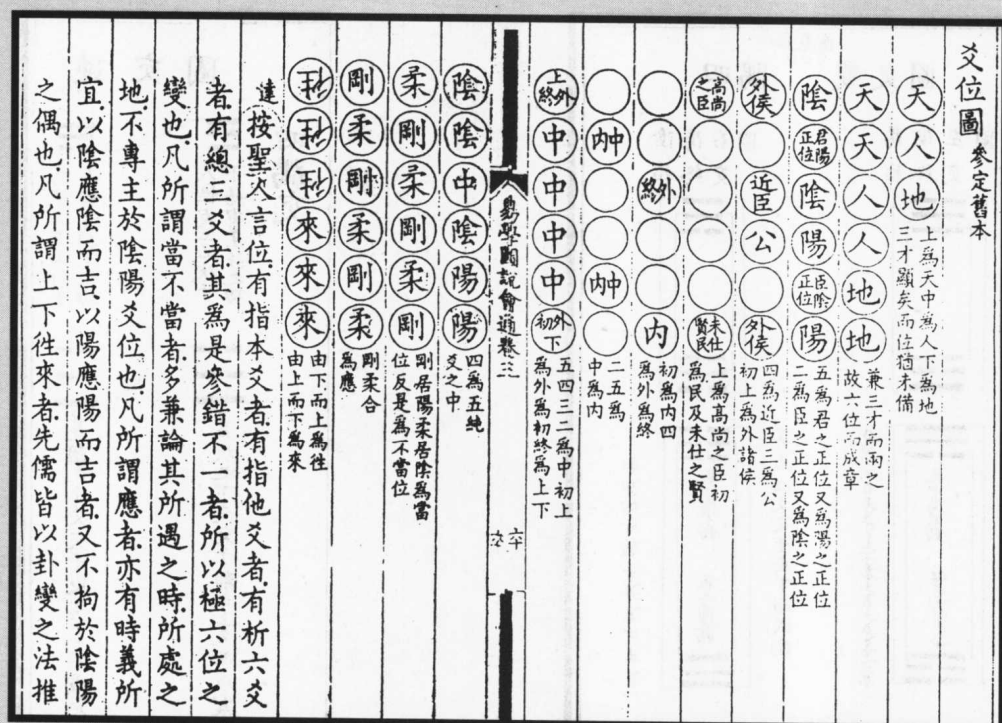 爻位圖 參定舊本
天人地 上爲天中爲人下爲地三才顯矣而位猶未備
天天人人地地 兼三才而兩之故六位而成章
陰 君陽正位 陰陽 臣陰正位 陽 五爲君之正位又爲陽之正位二爲臣之正位又爲陰之正位
外侯 近臣 公 外侯 四爲近臣三爲公初上爲外諸侯
高尚之臣 未仕賢民 上爲高尚之臣初爲民及未仕之賢
外終 内 初爲内四爲外爲終
中内 中内 二五爲中爲内
上外終 中中中中 初外下 五四三二爲中初上爲外爲初終爲上下
易學圖說會通卷三
陰陰中陰陽陽 四爲五純爻之中
柔剛柔剛柔剛 剛居陽柔居陰爲當位反是爲不當位
剛柔剛柔剛柔 剛柔合爲應
往往往來來來 由下而上爲徃由上而下爲來
達按聖人言位有指本爻者有指他爻者有析六爻
者有總三爻者其爲是參錯不一者所以極六位之
變也凡所謂當不當者多兼論其所遇之時所處之
地不專主於陰陽爻位也凡所謂應者亦有時義所
宜以陰應陰而吉以陽應陽而吉者又不拘於陰陽
之偶也凡所謂上下徃來者先儒皆以卦變之法推